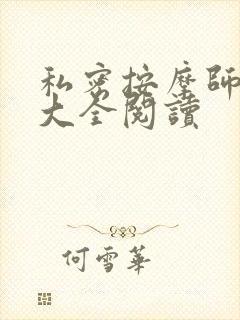 私密按摩師
大全閱讀
何雪華